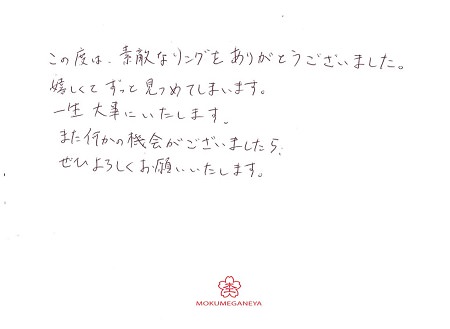 この度は、素敵なリングをありがとうございました。
嬉しくてずっと見つめてしまいます。
一生大事にいたします。
また何かの機会がございましたら、
ぜひよろしくお願いいたします。
MOKUMEGANEYA